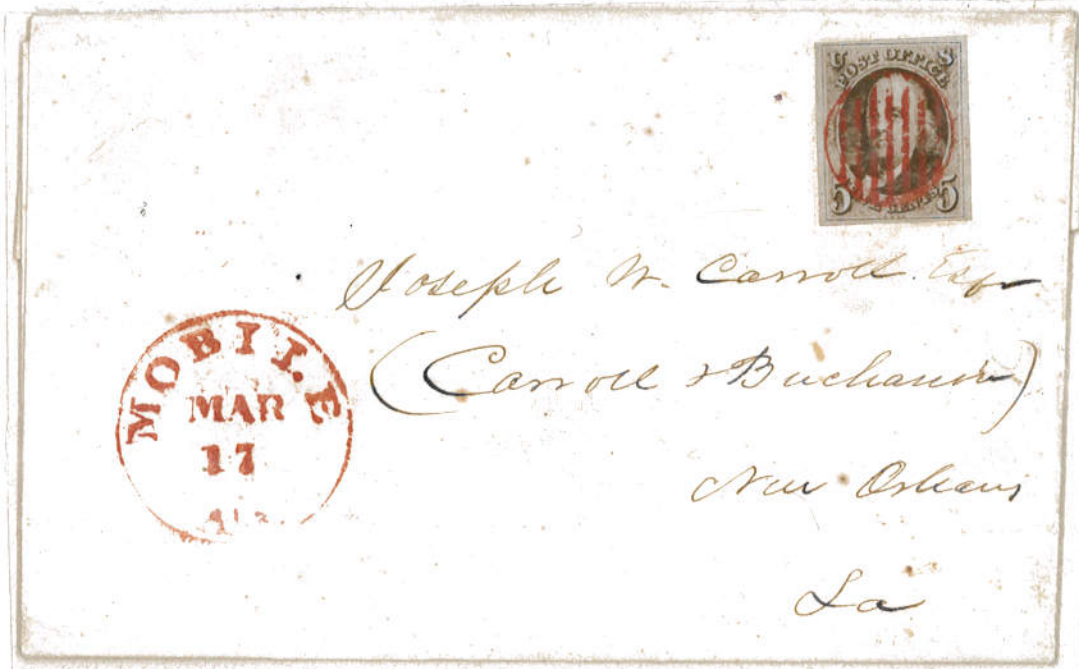 U S
POST OFFICE
FIVE CENTS
5 5
Joseph W. Carroll Esqr
(Carroll & Buchanan)
New Orleans
La
MOBILE
MAR
17
Ala.